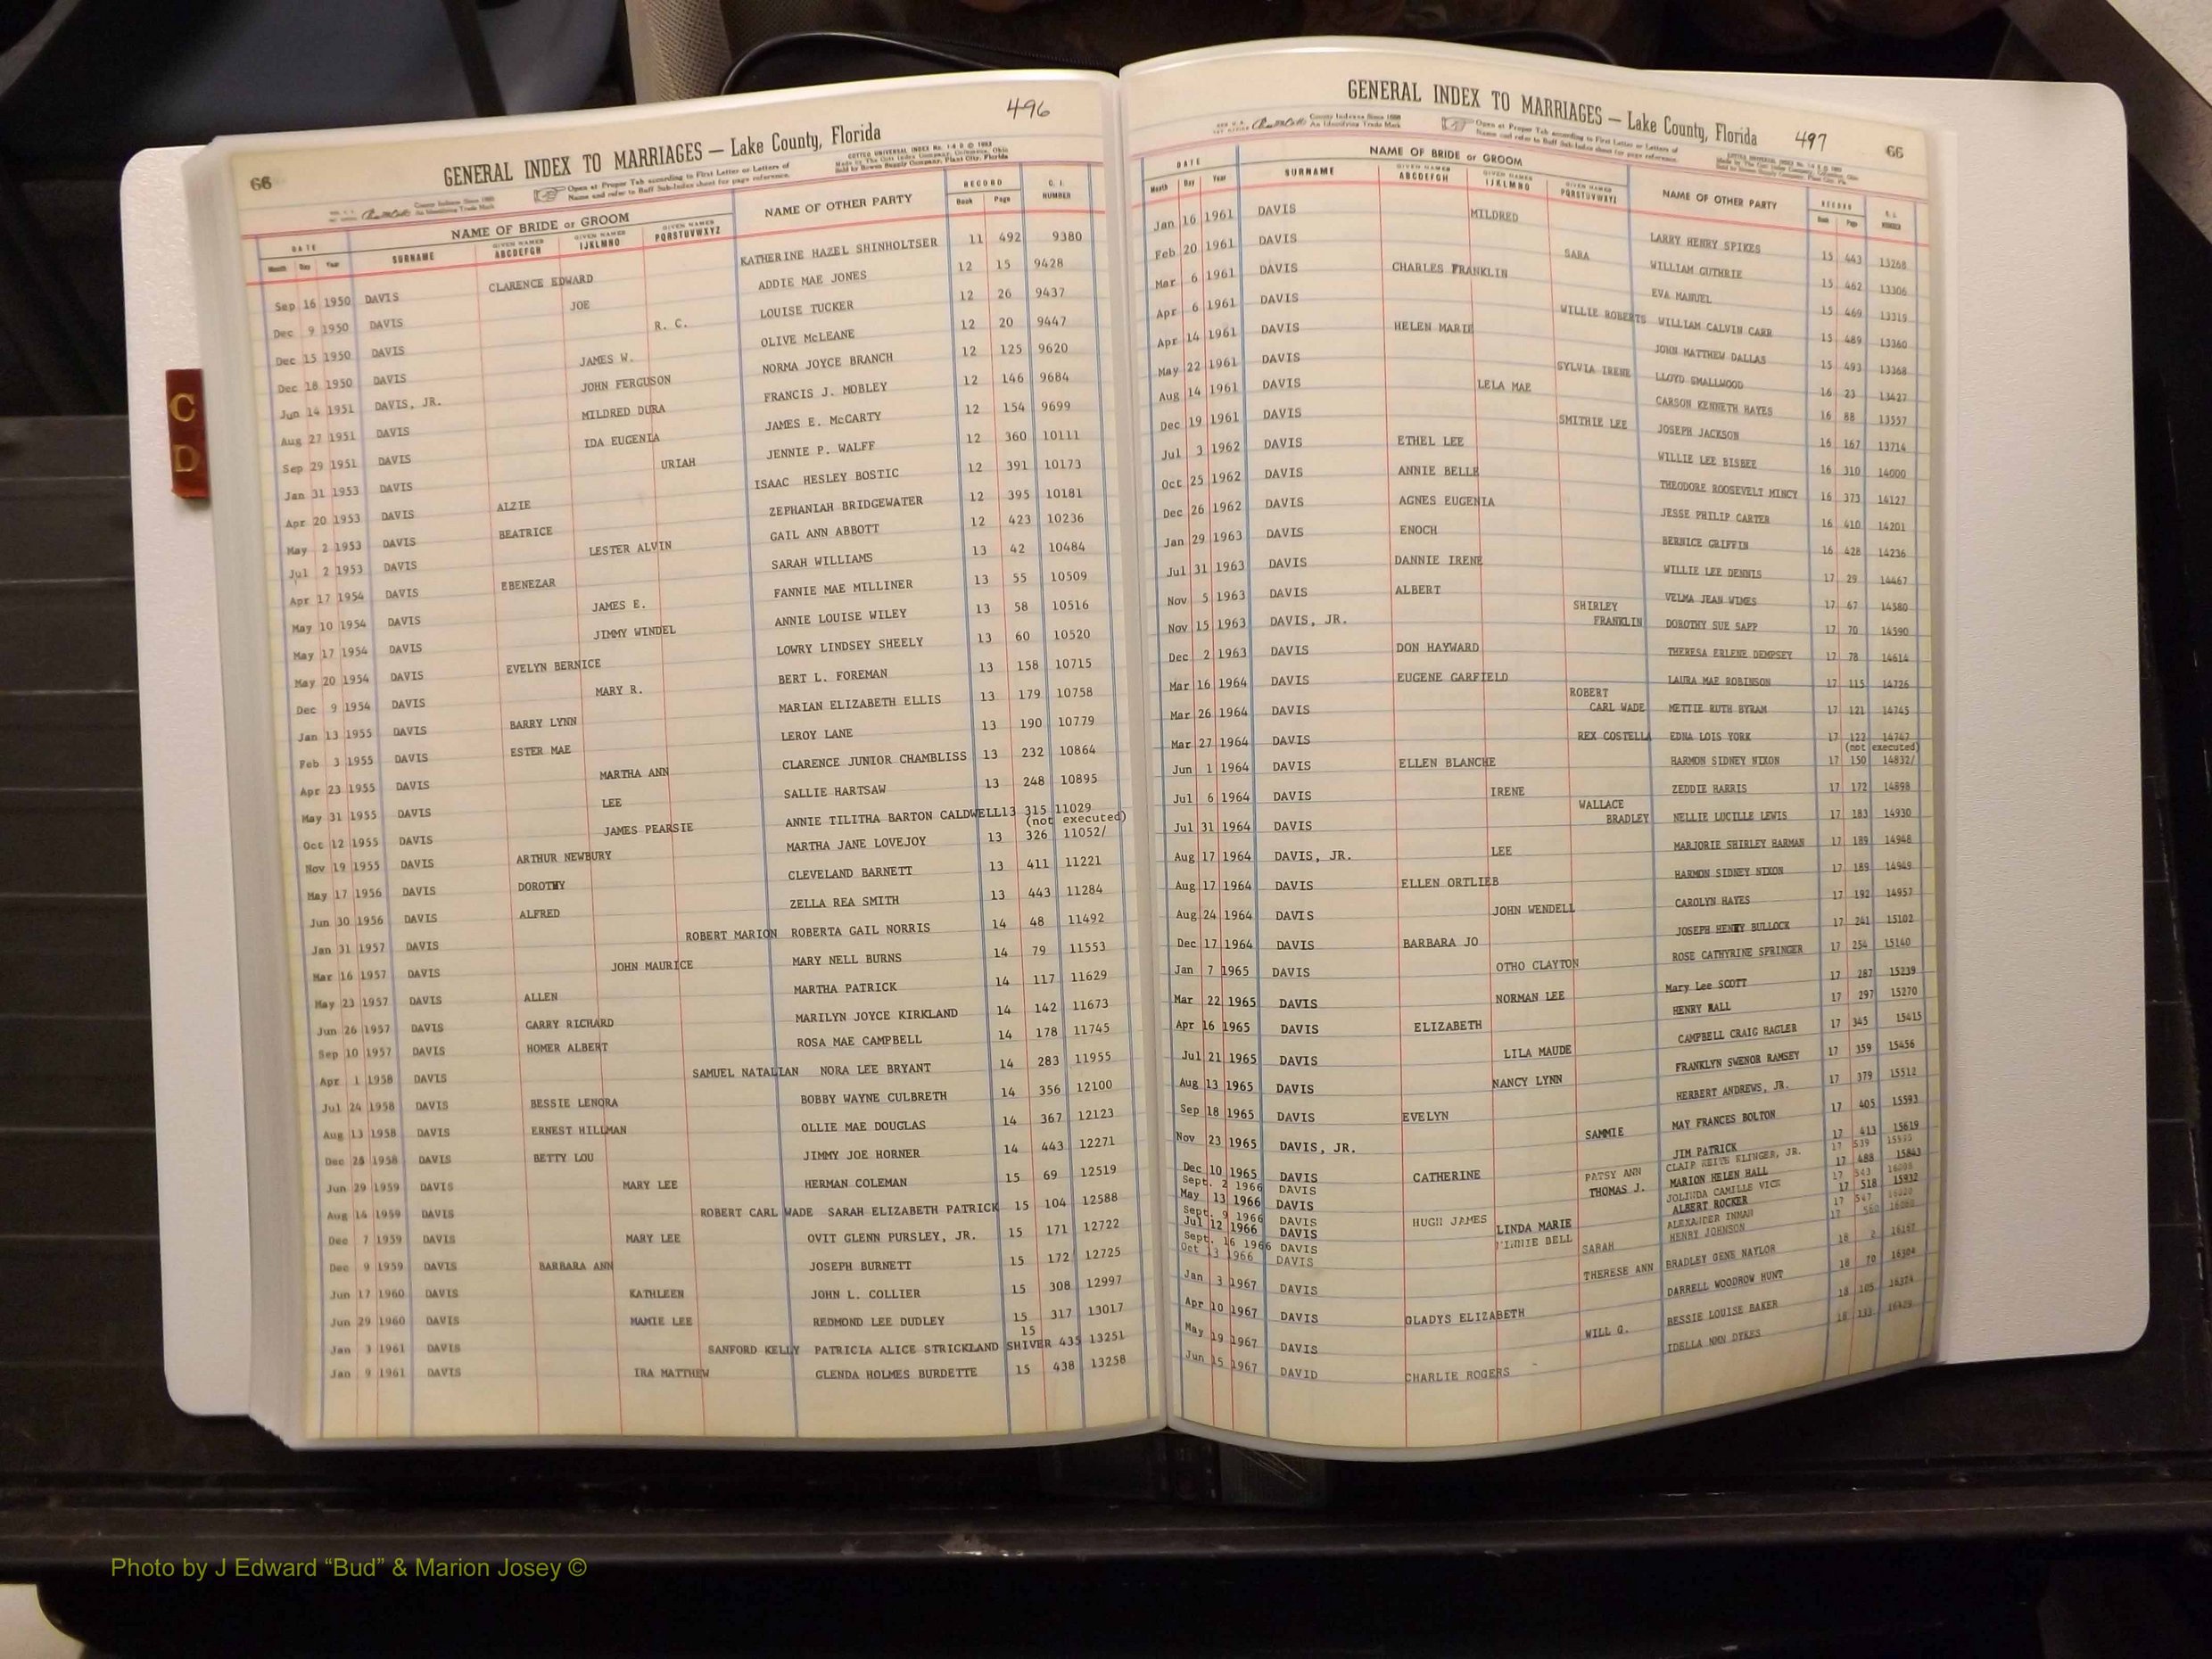 496
66
GENERAL INDEX TO MARRIAGES — Lake County, Florida
Open at Proper Tab according to First Letter or Letters of
Name and refer to Buff Sub-Index sheet for page reference.
COTTCO UNIVERSAL INDEX
Made by The Cott Index Company, Columbus, Ohio
Sold by Bowen Supply Company, Plant City, Florida
County Indexes Since 1888
An Identifying Trade Mark
DATE NAME OF BRIDE or GROOM NAME OF OTHER PARTY RECORD C. I.
Month Day Year SURNAME GIVEN NAMES ABCDEFGH GIVEN NAMES IJKLMNO GIVEN NAMES PQRSTUVWXYZ Book Page NUMBER
Sep 16 1950 DAVIS CLARENCE EDWARD KATHERINE HAZEL SHINHOLTSER 11 492 9380
Dec 9 1950 DAVIS JOE ADDIE MAE JONES 12 15 9428
Dec 15 1950 DAVIS R. C. LOUISE TUCKER 12 26 9437
Dec 18 1950 DAVIS JAMES W. OLIVE McLEANE 12 20 9447
Jun 14 1951 DAVIS, JR. JOHN FERGUSON NORMA JOYCE BRANCH 12 125 9620
Aug 27 1951 DAVIS MILDRED DURA FRANCIS J. MOBLEY 12 146 9684
Sep 29 1951 DAVIS IDA EUGENIA JAMES E. McCARTY 12 154 9699
Jan 31 1953 DAVIS URIAH JENNIE P. WALFF 12 360 10111
Apr 20 1953 DAVIS ALZIE ISAAC HESLEY BOSTIC 12 391 10173
May 2 1953 DAVIS BEATRICE ZEPHANIAH BRIDGEWATER 12 395 10181
Jul 2 1953 DAVIS LESTER ALVIN GAIL ANN ABBOTT 12 423 10236
Apr 17 1954 DAVIS EBENEZAR SARAH WILLIAMS 13 42 10484
May 10 1954 DAVIS JAMES E. FANNIE MAE MILLINER 13 55 10509
May 17 1954 DAVIS JIMMY WINDEL ANNIE LOUISE WILEY 13 58 10516
May 20 1954 DAVIS EVELYN BERNICE LOWRY LINDSEY SHEELY 13 60 10520
Dec 9 1954 DAVIS MARY R. BERT L. FOREMAN 13 158 10715
Jan 13 1955 DAVIS BARRY LYNN MARIAN ELIZABETH ELLIS 13 179 10758
Feb 3 1955 DAVIS ESTER MAE LEROY LANE 13 190 10779
Apr 23 1955 DAVIS MARTHA ANN CLARENCE JUNIOR CHAMBLISS 13 232 10864
May 31 1955 DAVIS LEE SALLIE HARTSAW 13 248 10895
Oct 12 1955 DAVIS JAMES PEARSIE ANNIE TILITHA BARTON CALDWELL 13 315 11029
(not executed)
Nov 19 1955 DAVIS ARTHUR NEWBURY MARTHA JANE LOVEJOY 13 326 11052/
May 17 1956 DAVIS DOROTHY CLEVELAND BARNETT 13 411 11221
Jun 30 1956 DAVIS ALFRED ZELLA REA SMITH 13 443 11284
Jan 31 1957 DAVIS ROBERT MARION ROBERTA GAIL NORRIS 14 48 11492
Mar 16 1957 DAVIS JOHN MAURICE MARY NELL BURNS 14 79 11553
May 23 1957 DAVIS ALLEN MARTHA PATRICK 14 117 11629
Jun 26 1957 DAVIS GARRY RICHARD MARILYN JOYCE KIRKLAND 14 142 11673
Sep 10 1957 DAVIS HOMER ALBERT ROSA MAE CAMPBELL 14 178 11745
Apr 1 1958 DAVIS SAMUEL NATALIAN NORA LEE BRYANT 14 283 11955
Jul 24 1958 DAVIS BESSIE LENORA BOBBY WAYNE CULBRETH 14 356 12100
Aug 13 1958 DAVIS ERNEST HILLMAN OLLIE MAE DOUGLAS 14 367 12123
Dec 28 1958 DAVIS BETTY LOU JIMMY JOE HORNER 14 443 12271
Jun 29 1959 DAVIS MARY LEE HERMAN COLEMAN 15 69 12519
Aug 14 1959 DAVIS ROBERT CARL WADE SARAH ELIZABETH PATRICK 15 104 12588
Dec 7 1959 DAVIS MARY LEE OVIT GLENN PURSLEY, JR. 15 171 12722
Dec 9 1959 DAVIS BARBARA ANN JOSEPH BURNETT 15 172 12725
Jun 17 1960 DAVIS KATHLEEN JOHN L. COLLIER 15 308 12997
Jun 29 1960 DAVIS MAMIE LEE REDMOND LEE DUDLEY 15 317 13017
Jan 3 1961 DAVIS SANFORD KELLY PATRICIA ALICE STRICKLAND SHIVER 15 435 13251
Jan 9 1961 DAVIS IRA MATTHEW GLENDA HOLMES BURDETTE 15 438 13258
GENERAL INDEX TO MARRIAGES — Lake County, Florida
497
66
County Indexes Since 1888
An Identifying Trade Mark
Open at Proper Tab according to First Letter or Letters of
Name and refer to Buff Sub-Index sheet for page reference.
DATE NAME OF BRIDE or GROOM NAME OF OTHER PARTY RECORD C. I.
Month Day Year SURNAME GIVEN NAMES ABCDEFGH GIVEN NAMES IJKLMNO GIVEN NAMES PQRSTUVWXYZ Book Page NUMBER
Jan 16 1961 DAVIS MILDRED LARRY HENRY SPIKES 15 443 13268
Feb 20 1961 DAVIS SARA WILLIAM GUTHRIE 15 462 13306
Mar 6 1961 DAVIS CHARLES FRANKLIN EVA MANUEL 15 469 13315
Apr 6 1961 DAVIS WILLIE ROBERTS WILLIAM CALVIN CARR 15 489 13360
Apr 14 1961 DAVIS HELEN MARIE JOHN MATTHEW DALLAS 15 493 13368
May 22 1961 DAVIS SYLVIA IRENE LLOYD SMALLWOOD 16 23 13427
Aug 14 1961 DAVIS LELA MAE CARSON KENNETH HAYES 16 88 13557
Dec 19 1961 DAVIS SMITHIE LEE JOSEPH JACKSON 16 167 13714
Jul 3 1962 DAVIS ETHEL LEE WILLIE LEE BISBEE 16 310 14000
Oct 25 1962 DAVIS ANNIE BELLE THEODORE ROOSEVELT MINCY 16 373 14127
Dec 26 1962 DAVIS AGNES EUGENIA JESSE PHILIP CARTER 16 410 14201
Jan 29 1963 DAVIS ENOCH BERNICE GRIFFIN 16 428 14236
Jul 31 1963 DAVIS DANNIE IRENE WILLIE LEE DENNIS 17 29 14467
Nov 5 1963 DAVIS ALBERT VELMA JEAN WIMES 17 67 14580
Nov 15 1963 DAVIS, JR. SHIRLEY FRANKLIN DOROTHY SUE SAPP 17 70 14590
Dec 2 1963 DAVIS DON HAYWARD THERESA ERLENE DEMPSEY 17 78 14614
Mar 16 1964 DAVIS EUGENE GARFIELD LAURA MAE ROBINSON 17 115 14726
Mar 26 1964 DAVIS ROBERT CARL WADE METTIE RUTH BYRAM 17 121 14745
Mar 27 1964 DAVIS REX COSTELLA EDNA LOIS YORK 17 122 14747
(not executed)
Jun 1 1964 DAVIS ELLEN BLANCHE HARMON SIDNEY NIXON 17 150 14832/
Jul 6 1964 DAVIS IRENE ZEDDIE HARRIS 17 172 14898
Jul 31 1964 DAVIS WALLACE BRADLEY NELLIE LUCILLE LEWIS 17 183 14930
Aug 17 1964 DAVIS, JR. LEE MARJORIE SHIRLEY HARMAN 17 189 14948
Aug 17 1964 DAVIS ELLEN ORTLIEB HARMON SIDNEY NIXON 17 189 14949
Aug 24 1964 DAVIS JOHN WENDELL CAROLYN HAYES 17 192 14957
Dec 17 1964 DAVIS BARBARA JO JOSEPH HENRY BULLOCK 17 241 15102
Jan 7 1965 DAVIS OTHO CLAYTON ROSE CATHYRINE SPRINGER 17 254 15140
Mar 22 1965 DAVIS NORMAN LEE Mary Lee SCOTT 17 287 15239
Apr 16 1965 DAVIS ELIZABETH HENRY HALL 17 297 15270
Jul 21 1965 DAVIS LILA MAUDE CAMPBELL CRAIG HAGLER 17 345 15415
Aug 13 1965 DAVIS NANCY LYNN FRANKLYN SWENOR RAMSEY 17 359 15456
Sep 18 1965 DAVIS EVELYN HERBERT ANDREWS, JR. 17 379 15512
Nov 23 1965 DAVIS, JR. SAMMIE MAY FRANCES BOLTON 17 405 15593
Dec 10 1965 DAVIS CATHERINE JIM PATRICK 17 413 15619
Sept. 2 1966 DAVIS PATSY ANN CLAIR KEITH KLINGER, JR. 17 539
May 13 1966 DAVIS THOMAS J. MARION HELEN HALL 17 488 15843
Sept. 9 1966 DAVIS HUGH JAMES JOLINDA CAMILLE VICK 17 543
Jul 12 1966 DAVIS LINDA MARIE ALBERT ROCKER 17 518 15932
Sept. 16 1966 DAVIS BELL ALEXANDER INMAN 17 547
Oct 13 1966 DAVIS SARAH HENRY JOHNSON 17 560
Jan 3 1967 DAVIS THERESE ANN BRADLEY GENE NAYLOR 18 2 16167
Apr 10 1967 DAVIS GLADYS ELIZABETH DARRELL WOODROW HUNT 18 70 16304
May 19 1967 DAVIS WILL G. BESSIE LOUISE BAKER 18 105 16374
Jun 15 1967 DAVID CHARLIE ROGERS IDELLA NMN DYKES 18 133 16429
C
D
Photo by J Edward “Bud” & Marion Josey ©